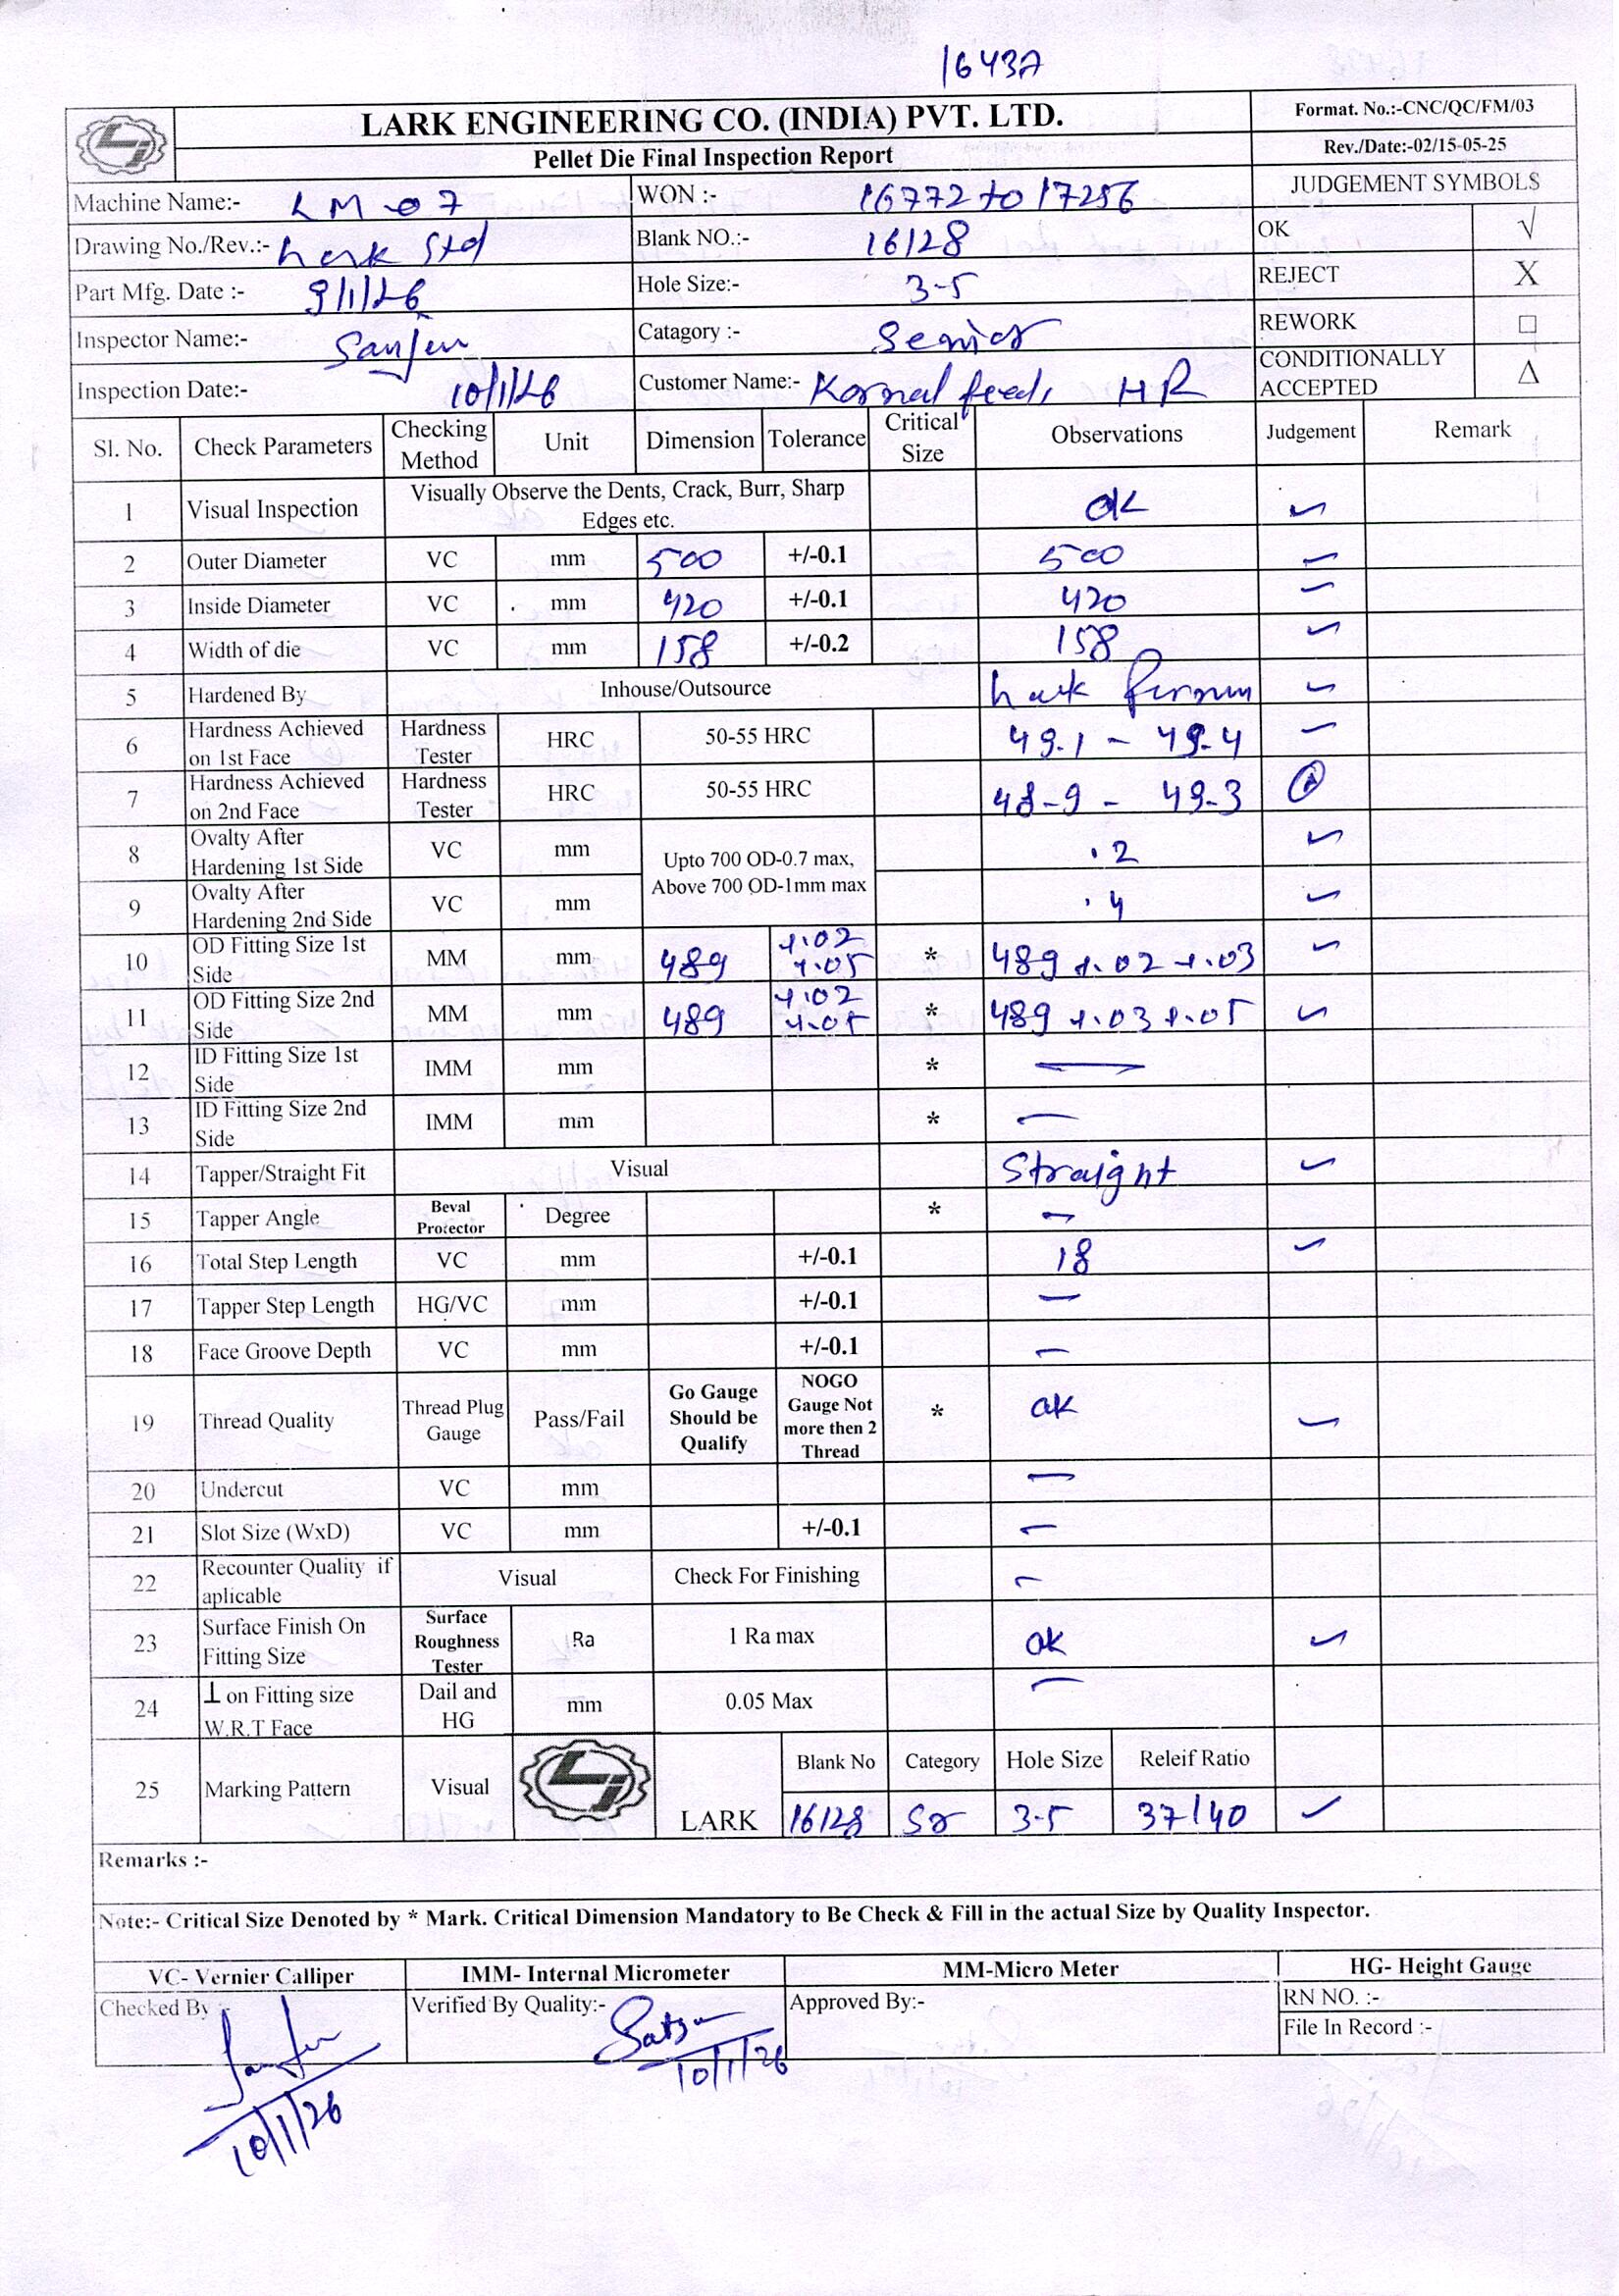 16437
LARK ENGINEERING CO. (INDIA) PVT. LTD.
Format. No.:-CNC/QC/FM/03
Pellet Die Final Inspection Report
Rev./Date:-02/15-05-25
Machine Name:- LM 07 WON :- 16772 to 17256 JUDGEMENT SYMBOLS
Drawing No./Rev.:- Lark Std Blank NO.:- 16128 OK √
Part Mfg. Date :- 9/1/26 Hole Size:- 3-5 REJECT X
Inspector Name:- Catagory :- Senior REWORK □
Inspection Date:- 10/1/26 Customer Name:- Karnal feeds HR CONDITIONALLY ACCEPTED Δ
Sl. No. Check Parameters Checking Method Unit Dimension Tolerance Critical Size Observations Judgement Remark
1 Visual Inspection Visually Observe the Dents, Crack, Burr, Sharp Edges etc. ok ✓
2 Outer Diameter VC mm 500 +/-0.1 500 ✓
3 Inside Diameter VC mm 420 +/-0.1 420 ✓
4 Width of die VC mm 158 +/-0.2 158 ✓
5 Hardened By Inhouse/Outsource Lark ✓
6 Hardness Achieved on 1st Face Hardness Tester HRC 50-55 HRC 49.1 - 49.4 ✓
7 Hardness Achieved on 2nd Face Hardness Tester HRC 50-55 HRC 48-9 - 49-3
8 Ovalty After Hardening 1st Side VC mm Upto 700 OD-0.7 max, Above 700 OD-1mm max .2 ✓
9 Ovalty After Hardening 2nd Side VC mm .4 ✓
10 OD Fitting Size 1st Side MM mm 489 +.02 +.05 * 489 +.02 +.03 ✓
11 OD Fitting Size 2nd Side MM mm 489 +.02 +.05 * 489 +.03 +.05 ✓
12 ID Fitting Size 1st Side IMM mm * —
13 ID Fitting Size 2nd Side IMM mm * —
14 Tapper/Straight Fit Visual Straight ✓
15 Tapper Angle Beval Protector Degree * —
16 Total Step Length VC mm +/-0.1 18 ✓
17 Tapper Step Length HG/VC mm +/-0.1 —
18 Face Groove Depth VC mm +/-0.1 —
19 Thread Quality Thread Plug Gauge Pass/Fail Go Gauge Should be Qualify NOGO Gauge Not more then 2 Thread * ok ✓
20 Undercut VC mm —
21 Slot Size (WxD) VC mm +/-0.1 —
22 Recounter Quality if aplicable Visual Check For Finishing —
23 Surface Finish On Fitting Size Surface Roughness Tester Ra 1 Ra max ok ✓
24 ⊥ on Fitting size W.R.T Face Dail and HG mm 0.05 Max —
25 Marking Pattern Visual LARK Blank No Category Hole Size Releif Ratio
16128 Sr 3-5 37/40 ✓
Remarks :-
Note:- Critical Size Denoted by * Mark. Critical Dimension Mandatory to Be Check & Fill in the actual Size by Quality Inspector.
VC- Vernier Calliper IMM- Internal Micrometer MM-Micro Meter HG- Height Gauge
Checked By Verified By Quality:- Approved By:- RN NO. :-
File In Record :-
10/1/26
10/1/26